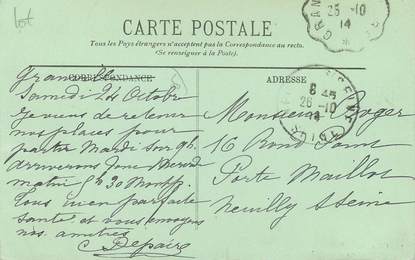 lot
CARTE POSTALE
Tous les Pays étrangers n'acceptent pas la Correspondance au recto.
(Se renseigner à la Poste).
CORRESPONDANCE
ADRESSE
GRAN
25-10
14
8 45
26-10
14
Granville
Samedi 24 Octobre
Je viens de retenir
nos places pour
partir Mardi soir 9h
arriverons donc Mercredi
matin 5h30 Montp.
Tous bien parfaite
santé et vous envoyons
nos amitiés
C Depaire
Monsieur Roger
16 Rond Point
Porte Maillot
Neuilly s/Seine